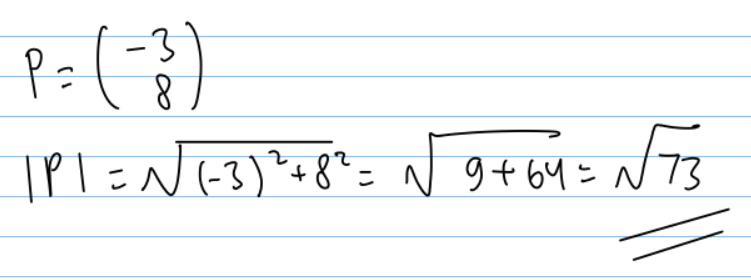 P = (-3 8)
|P| = √(-3)²+8² = √9+64 = √73